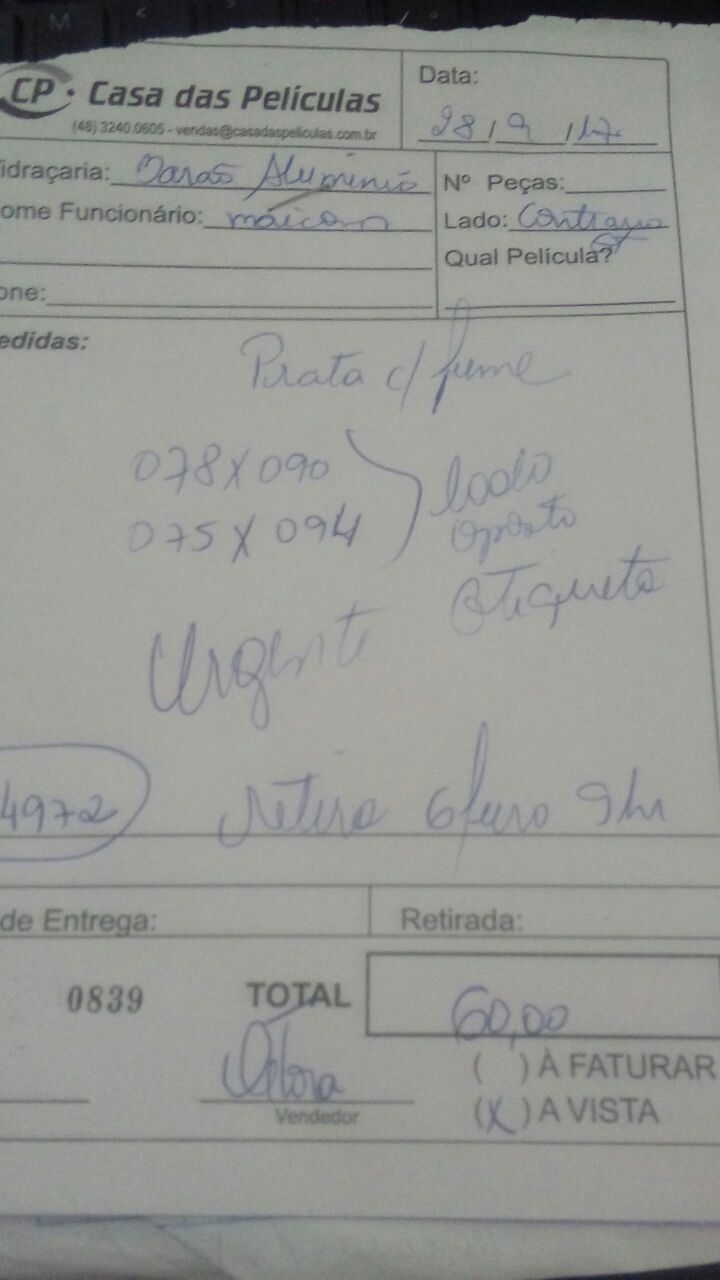 CP · Casa das Películas
(48) 3240.0605 - vendas@casadaspeliculas.com.br
Data:
28/9/17
idraçaria: Barão Aluminio
Nº Peças:
ome Funcionário: maicon
Lado: Contrario
Qual Película?
one:
edidas:
Prata c/ fume
078X090
lado
075X094
oposto
etiqueta
Urgente
4972
retira 9hr
de Entrega:
Retirada:
0839
TOTAL
60,00
( ) À FATURAR
Vendedor
(X) A VISTA